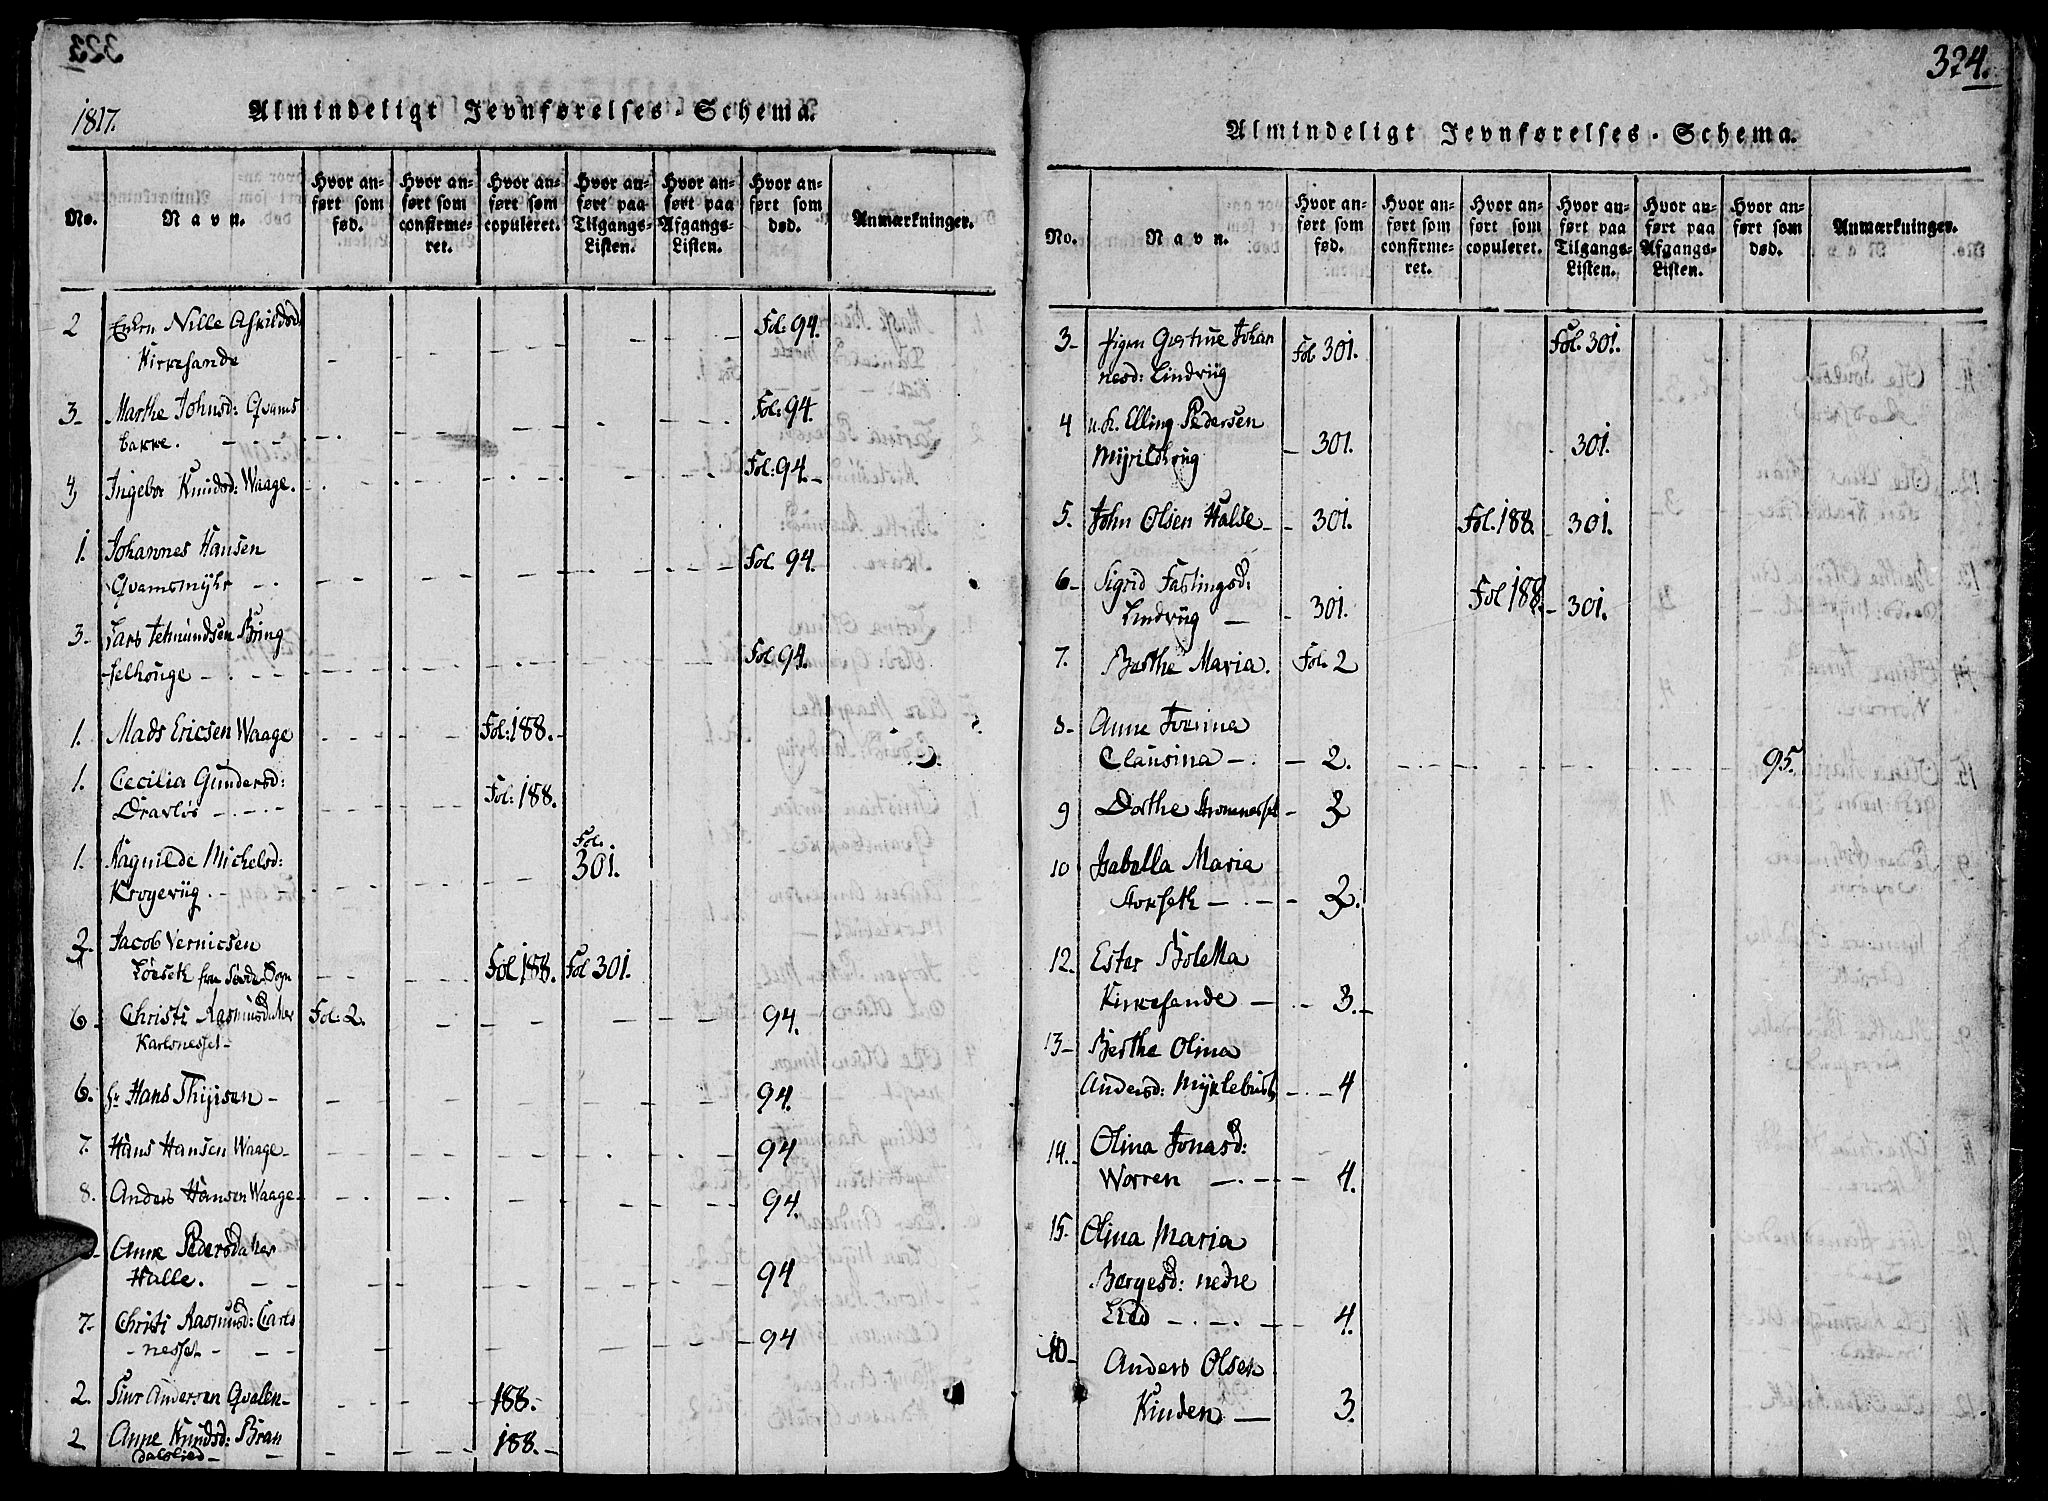 323
1817.
Almindeligt Jevnførelses-Schema.
No.
Navn.
Hvor anført som fød.
Hvor anført som confirmeret.
Hvor anført som copuleret.
Hvor anført paa Tilgangs-Listen.
Hvor anført paa Afgangs-Listen.
Hvor anført som død.
Anmærkninger.
2 Enken Nille Askildsd: Fol: 94.
Kirkesande
3- Marthe Johnsd: Qvams Fol: 94.
bakke.
4 Ingebor Knudsd: Waage. Fol: 94.-
1. Johannes Hansen
Qvamsmyhr Fol. 94.
3- Lars Bring
Fol. 94.
1. Mads Ericsen Waage Fol: 188.-
1. Cecilia Gundersd:
Dravløs Fol: 188.
1. Ragnilde Michelsd: Fol.
301.
2. Jacob Vernicsen
Fol 188. Fol 301.
6- Christi Fol: 2. 94.
Karlsnesset-
6. Hr Hans Thÿisen - 94.
7. Hans Hansen Waage- 94
8. Anders Hansen Waage- 94.
Anne Pedersdatter
Halle. 94
7- Christi Rasmusd: Carls
-nesset- 94
2. Andersen Qvalen- 188.-
2 Anne Knudsd: Bran
188.-
324.
Almindeligt Jevnførelses-Schema.
No.
Navn.
Hvor anført som fød.
Hvor anført som confirmeret.
Hvor anført som copuleret.
Hvor anført paa Tilgangs-Listen.
Hvor anført paa Afgangs-Listen.
Hvor anført som død.
Anmærkninger.
3- Pigen Johan Fol 301. Fol. 301.
nesd:
4 u.k. Elling Pedersen
301. 301.
5. John Olsen Halse - 301. Fol. 188. 301.
6- Sigrid Fastingsd:
301. Fol 188. 301.
7. Berthe Maria. Fol. 2
8- Anne
Clausina - 2. 95.
9 Dorthe 3
10 Isabella Maria
2.
12. Ester Boletta
Kirkesande - 3.-
13- Berthe Olina
Andersd: Mÿklebust 4
14. Olina Jonasd:
Worren 4.
15. Olina Maria
Børgesd: nedre
4.
10- Anders Olsen
Kinden - 3.